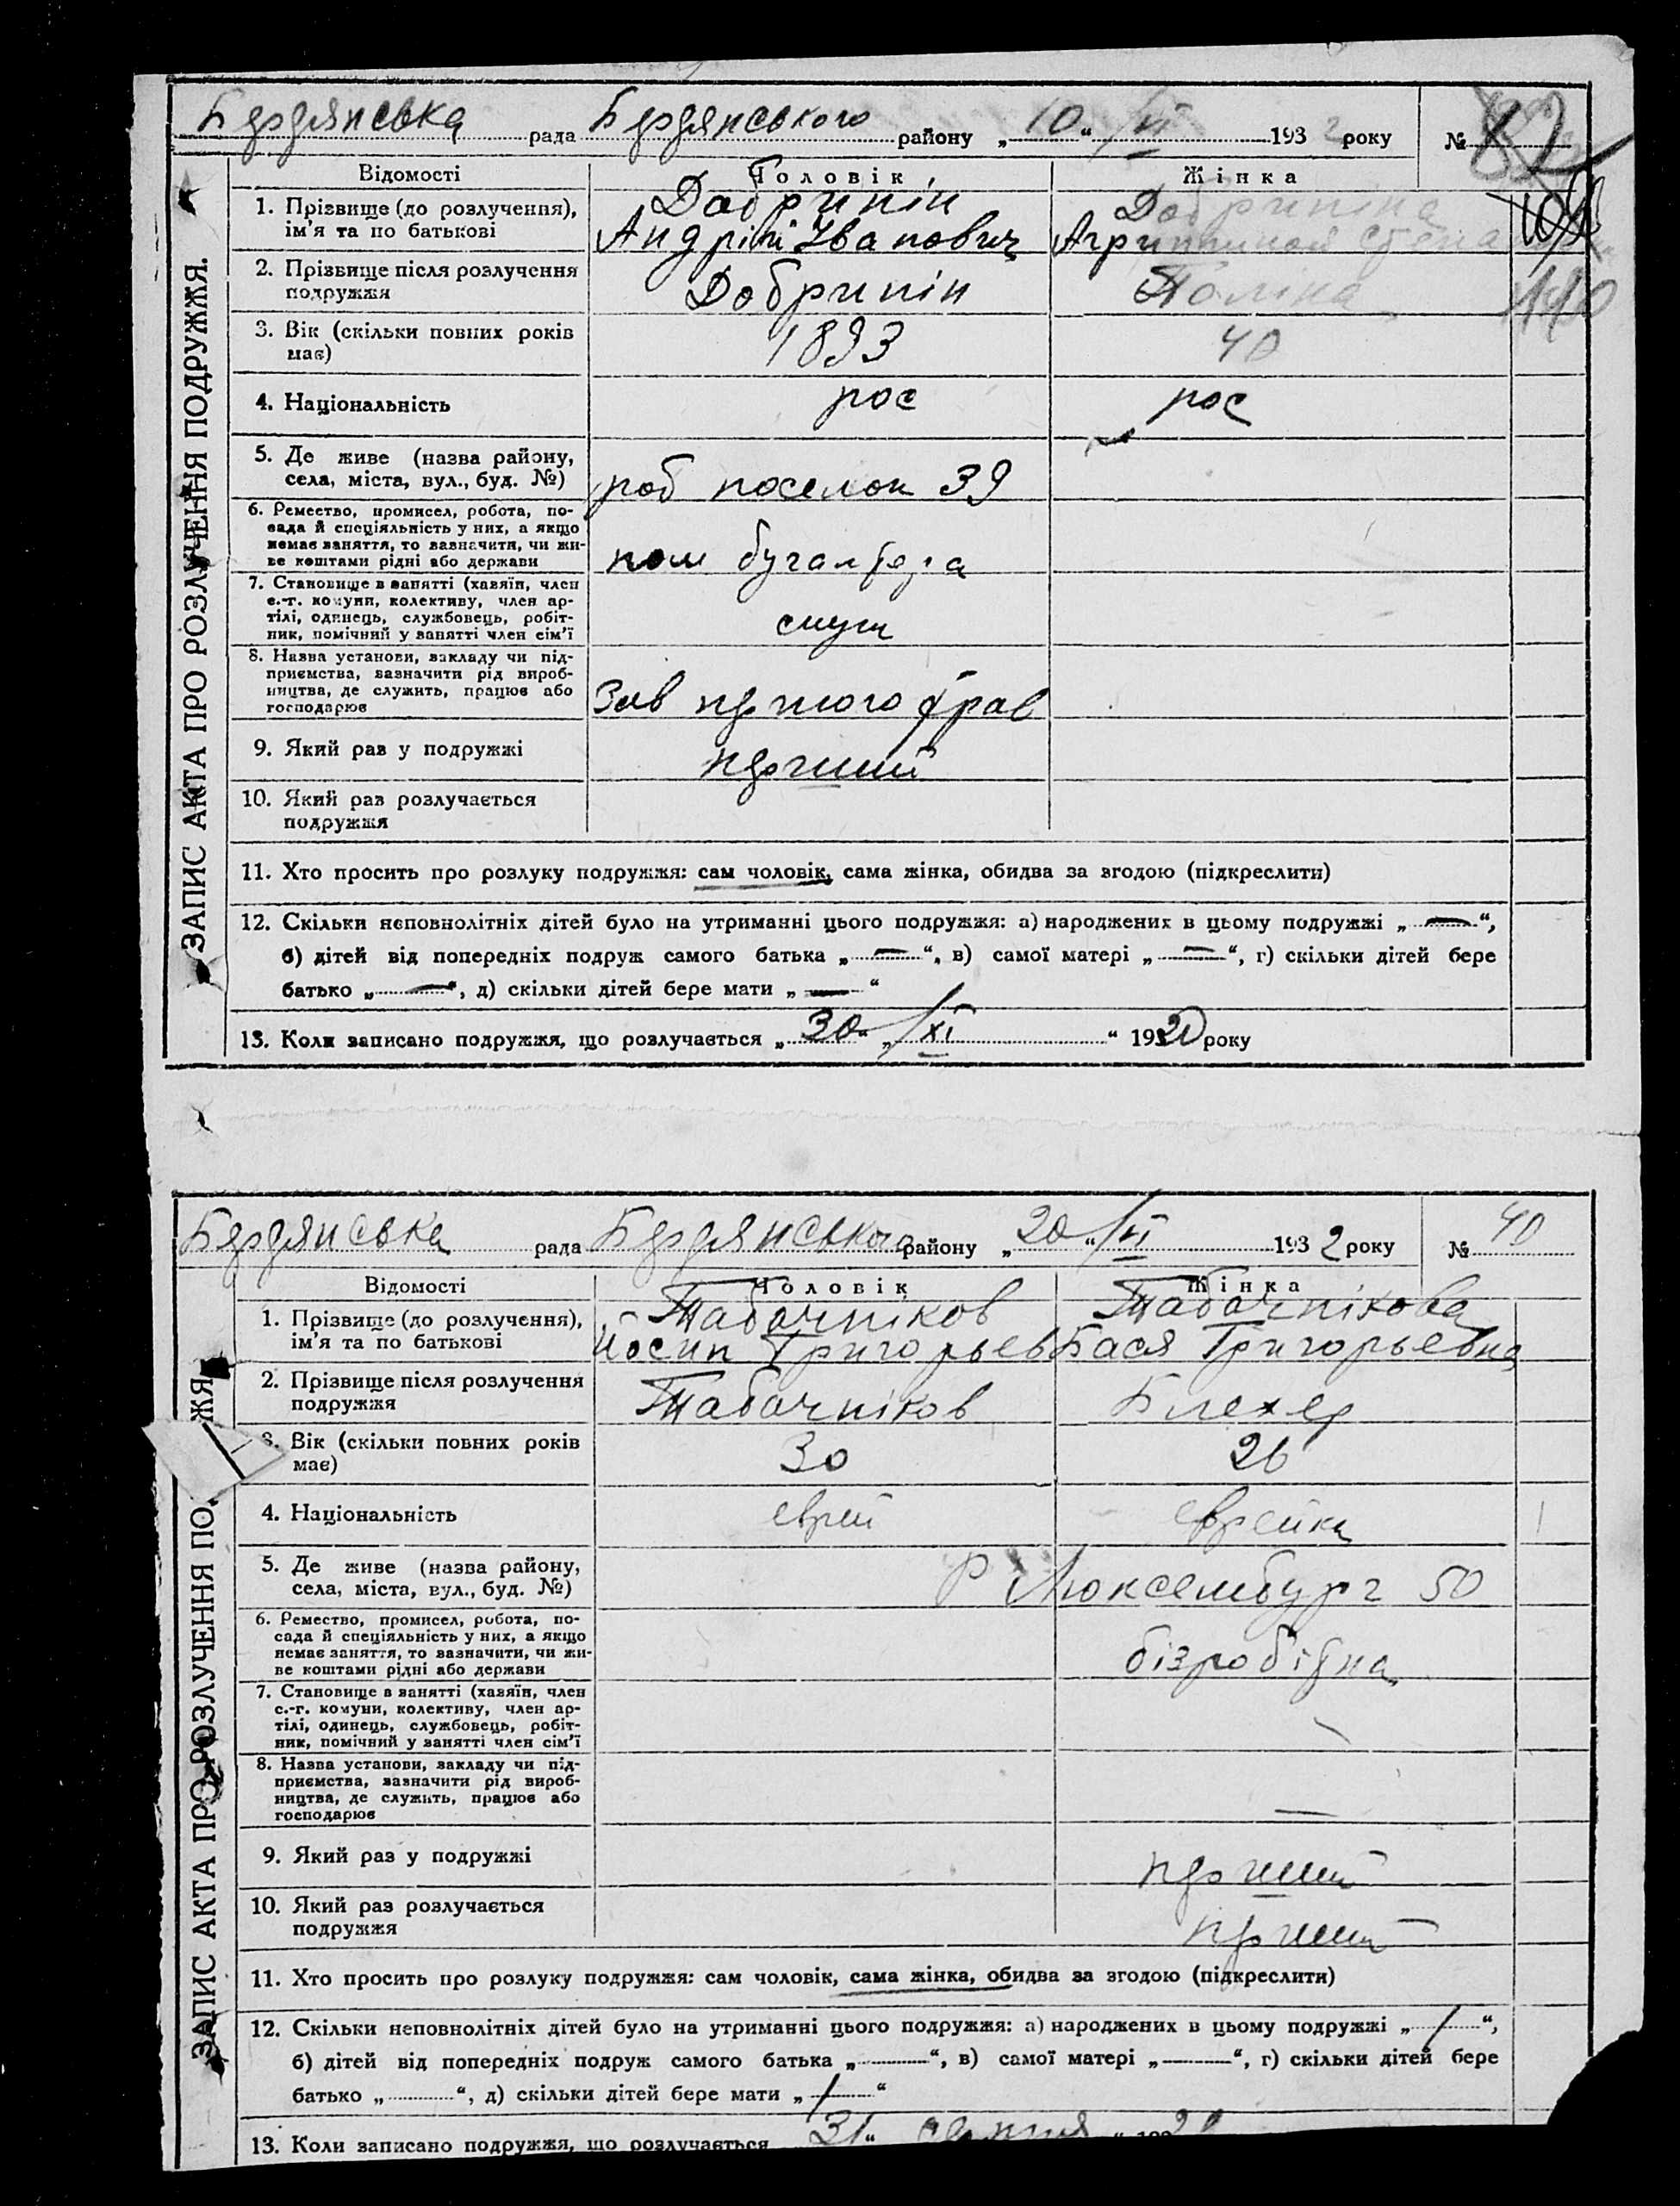 Бердянська рада Бердянського району „10“ /VI 1932 року №
ЗАПИС АКТА ПРО РОЗЛУЧЕННЯ ПОДРУЖЖЯ.
Відомості Чоловік Жінка
1. Прізвище (до розлучення), ім'я та по батькові
Добринін
Андрій Іванович
Добриніна
2. Прізвище після розлучення подружжя
Добринін
3. Вік (скільки повних років має)
1893 40
4. Національність
рос рос
5. Де живе (назва району, села, міста, вул., буд. №)
роб поселок 39
6. Ремество, промисел, робота, посада й спеціяльність у них, а якщо немає заняття, то зазначити, чи живе коштами рідні або держави
пом бугалтера
7. Становище в занятті (хазяїн, член с.-г. комуни, колективу, член артілі, одинець, службовець, робітник, помічний у занятті член сім'ї
служ
8. Назва установи, закладу чи підприємства, зазначити рід виробництва, де служить, працює або господарює
Зав
9. Який раз у подружжі
перший
10. Який раз розлучається подружжя
11. Хто просить про розлуку подружжя: сам чоловік, сама жінка, обидва за згодою (підкреслити)
12. Скільки неповнолітніх дітей було на утриманні цього подружжя: а) народжених в цьому подружжі „—“,
б) дітей від попередніх подруж самого батька „—“, в) самої матері „—“, г) скільки дітей бере
батько „—“, д) скільки дітей бере мати „—“
13. Коли записано подружжя, що розлучається „30“ „/XI“ 1920 року
Бердянська рада Бердянського району „20“ /VI 1932 року № 40
ЗАПИС АКТА ПРО РОЗЛУЧЕННЯ ПО ЖЯ
Відомості Чоловік Жінка
1. Прізвище (до розлучення), ім'я та по батькові
Табачніков
Йосип Григорьев
Табачнікова
Бася Григорьевна
2. Прізвище після розлучення подружжя
Табачніков Блехер
3. Вік (скільки повних років має)
30 26
4. Національність
еврей еврейка
5. Де живе (назва району, села, міста, вул., буд. №)
Р Люксембург 50
6. Ремество, промисел, робота, посада й спеціяльність у них, а якщо немає заняття, то зазначити, чи живе коштами рідні або держави
бізробітна
7. Становище в занятті (хазяїн, член с.-г. комуни, колективу, член артілі, одинець, службовець, робітник, помічний у занятті член сім'ї
8. Назва установи, закладу чи підприємства, зазначити рід виробництва, де служить, працює або господарює
—
9. Який раз у подружжі
перший
10. Який раз розлучається подружжя
перший
11. Хто просить про розлуку подружжя: сам чоловік, сама жінка, обидва за згодою (підкреслити)
12. Скільки неповнолітніх дітей було на утриманні цього подружжя: а) народжених в цьому подружжі „/“,
б) дітей від попередніх подруж самого батька „“, в) самої матері „“, г) скільки дітей бере
батько „“, д) скільки дітей бере мати „/“
13. Коли записано подружжя, що розлучається 31“